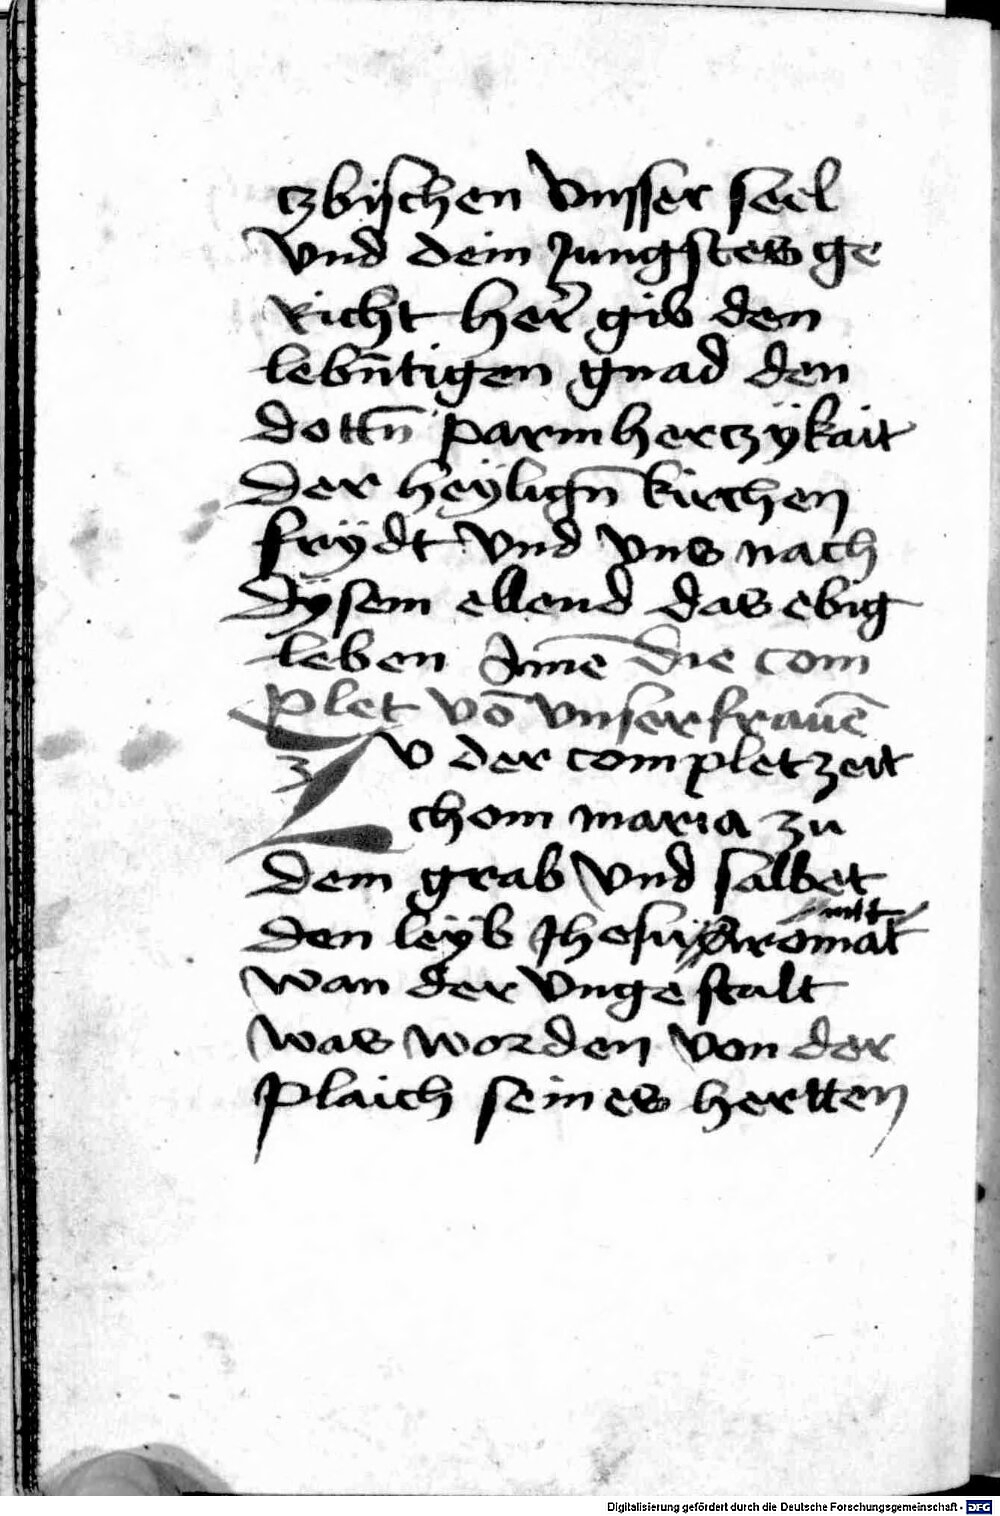 czbischen vnsser seel
vnd dein Jungstes ge
Richt herr gib den
lebn̄tigen gnad den
dottn̄ parmherczÿkait
der heÿlign̄ kirchen
frÿdt vnd vns nach
dÿsem ellend das ebig
leben Ame᷑ die com
plet vō vnser frauē
ZV der complet zeit
chom maria zu
dem grab vnd salbet
mit
den leÿb Jhesu aromat
wan der vngestalt
was worden von der
plaich seines hertten
Digitalisierung gefördert durch die Deutsche Forschungsgemeinschaft - DFG